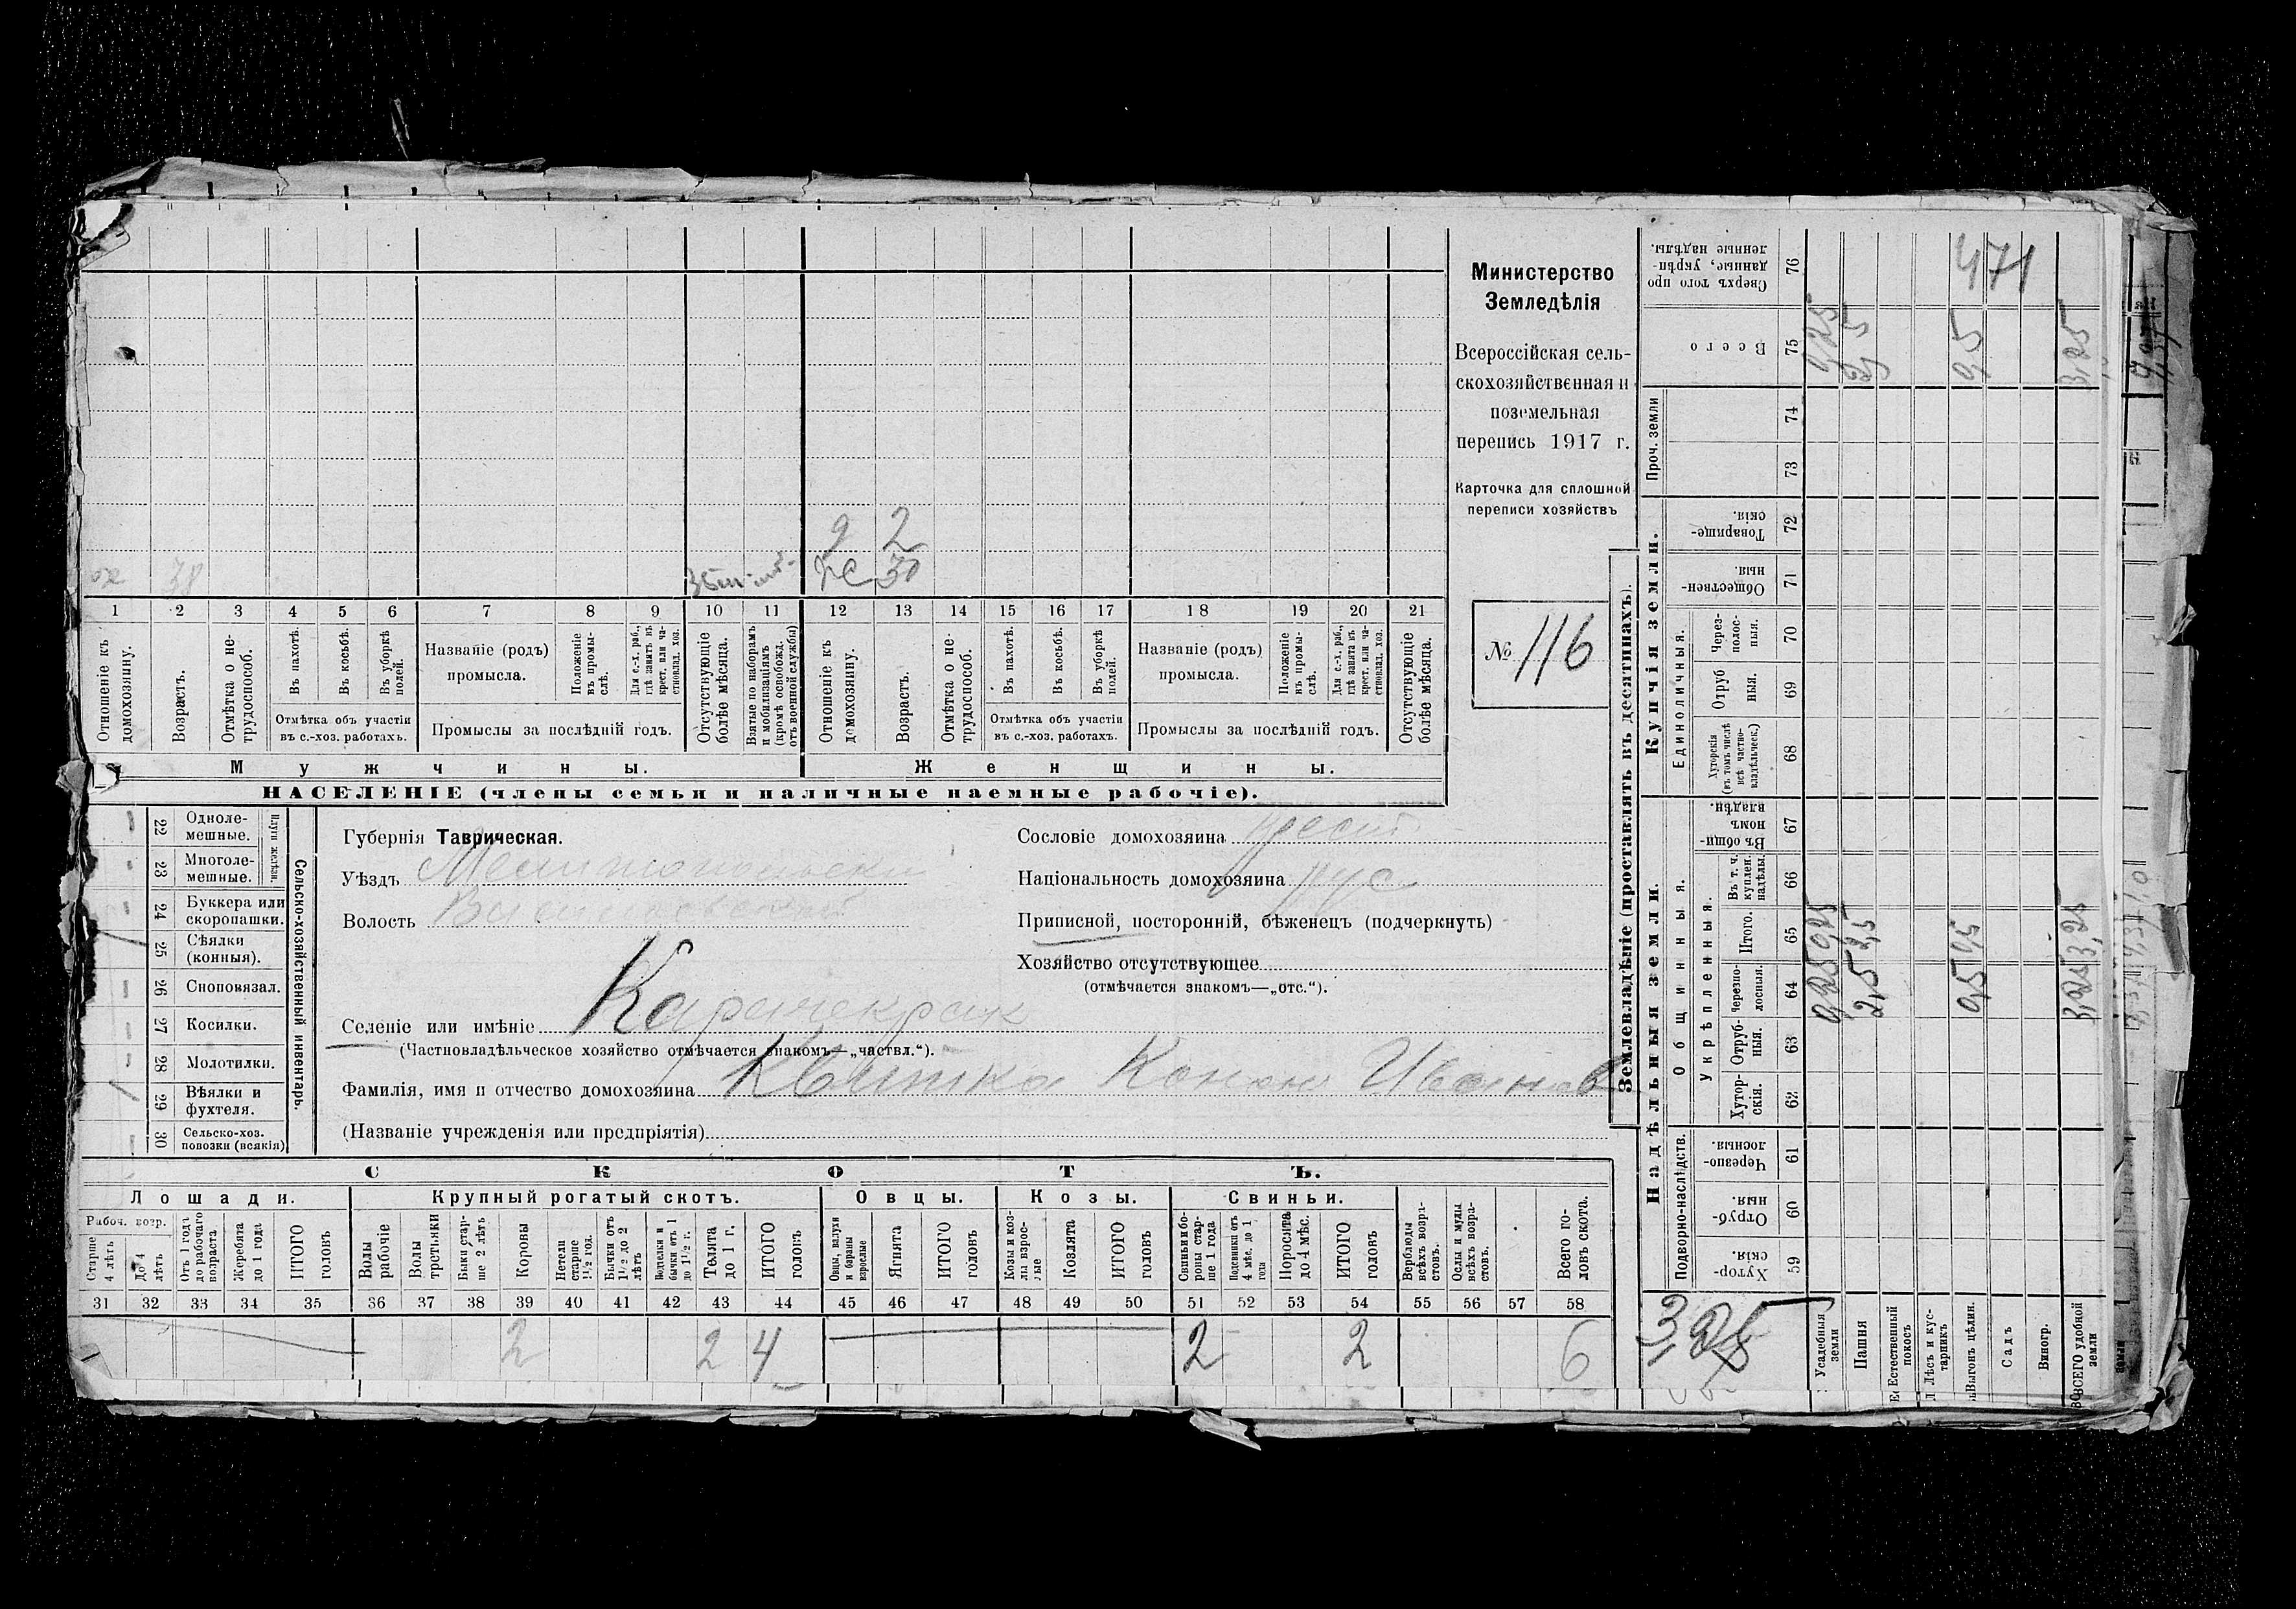 Министерство
Земледѣлія
Всероссійская сель-
скохозяйственная и
поземельная
перепись 1917 г.
Карточка для сплошной
переписи хозяйствъ
№ 116
9 2
38 30
1 2 3 4 5 6 7 8 9 10 11 12 13 14 15 16 17 18 19 20 21
Отношеніе къ домохозяину.
Возрастъ.
Отмѣтка о не-трудоспособ.
Въ пахотѣ.
Въ косьбѣ.
Въ уборкѣ полей.
Отмѣтка объ участіи
въ с.-хоз. работахъ.
Названіе (родъ)
промысла.
Положеніе въ промы-слѣ.
Для с.-х. раб., гдѣ занятъ въ крест. или ча-стновлад. хоз.
Промыслы за послѣдній годъ.
Отсутствующіе болѣе мѣсяца.
Взятые по наборамъ и мобилизаціямъ (кромѣ освобожд. отъ военной службы)
Отношеніе къ домохозяину.
Возрастъ.
Отмѣтка о не-трудоспособ.
Въ пахотѣ.
Въ косьбѣ.
Въ уборкѣ полей.
Отмѣтка объ участіи
въ с.-хоз. работахъ.
Названіе (родъ)
промысла.
Положеніе въ промы-слѣ.
Для с.-х. раб., гдѣ занята въ крест. или ча-стновлад. хоз.
Промыслы за послѣдній годъ.
Отсутствующіе болѣе мѣсяца.
Мужчины.
Женщины.
НАСЕЛЕНІЕ (члены семьи и наличные наемные рабочіе).
Сельско-хозяйственный инвентарь.
Плуги желѣзн.
22 Одноле-мешные.
23 Многоле-мешные.
24 Буккера или скоропашки.
25 Сѣялки (конныя).
26 Сноповязал.
27 Косилки.
28 Молотилки.
29 Вѣялки и фухтеля.
30 Сельско-хоз. повозки (всякія)
Губернія Таврическая.
Уѣздъ Мелитопольск
Волость
Селеніе или имѣніе
(Частновладѣльческое хозяйство отмѣчается знакомъ—„частвл.“).
Фамилія, имя и отчество домохозяина Квитка Конон Иванов
(Названіе учрежденія или предпріятія)
Сословіе домохозяина крест
Національность домохозяина рус
Приписной, посторонній, бѣженецъ (подчеркнуть)
Хозяйство отсутствующее
(отмѣчается знакомъ—„отс.“).
СКОТЪ.
Лошади.
Крупный рогатый скотъ.
Овцы.
Козы.
Свиньи.
Рабоч. возр.
Старше 4 лѣтъ
До 4 лѣтъ
Отъ 1 года до рабочаго возраста
Жеребята до 1 года
ИТОГО головъ
Волы рабочіе
Волы третьяки
Быки стар-ше 2 лѣтъ
Коровы
Нетели старше 1½ год.
Бычки отъ 1½ до 2 лѣтъ
Водѣлки и бычки отъ 1 до 1½ г.
Телята до 1 г.
ИТОГО головъ
Овцы, валухи и бараны взрослые
Ягнята
ИТОГО головъ
Козы и коз-лы взрос-лые
Козлята
ИТОГО головъ
Свиньи и бо-ровы стар-ше 1 года
Подсвинки отъ 4 мѣс. до 1 года
Поросята до 4 мѣс.
ИТОГО головъ
Верблюды всѣхъ возра-стовъ.
Ослы и мулы всѣхъ возра-стовъ.
Всего го-ловъ скота.
31 32 33 34 35 36 37 38 39 40 41 42 43 44 45 46 47 48 49 50 51 52 53 54 55 56 57 58
2 2 4 2 2 6
Землевладѣніе (проставлять въ десятинахъ).
Надѣльныя земли.
Купчія земли.
Подворно-наслѣдств.
Общинныя.
Укрѣпленныя.
Единоличныя.
Проч. земли
59 Хутор-скія.
60 Отруб-ныя.
61 Черезпо-лосныя.
62 Хутор-скія.
63 Отруб-ныя.
64 Черезпо-лосныя.
65 Итого.
66 Въ т. ч. куплен. надѣлы.
67 Въ общи-номъ владѣн.
68 Хуторскія (въ томъ числѣ всѣ частно-владѣльческ.)
69 Отруб ныя.
70 Через-полос-ныя.
71 Обществен-ныя.
72 Товарище-скія.
73
74
75 Всего
76 Сверхъ того про данные, укрѣп-ленные надѣлы.
Усадебныя земли
Пашня
Естественный покосъ
Лѣсъ и кус-тарникъ
Выгонъ цѣлин.
Садъ
Виногр.
ВСЕГО удобной земли
0,25 0,25 0,25
2,5 2,5 2,5
0,5 0,5 0,5
3,25 3,25 3,25
471